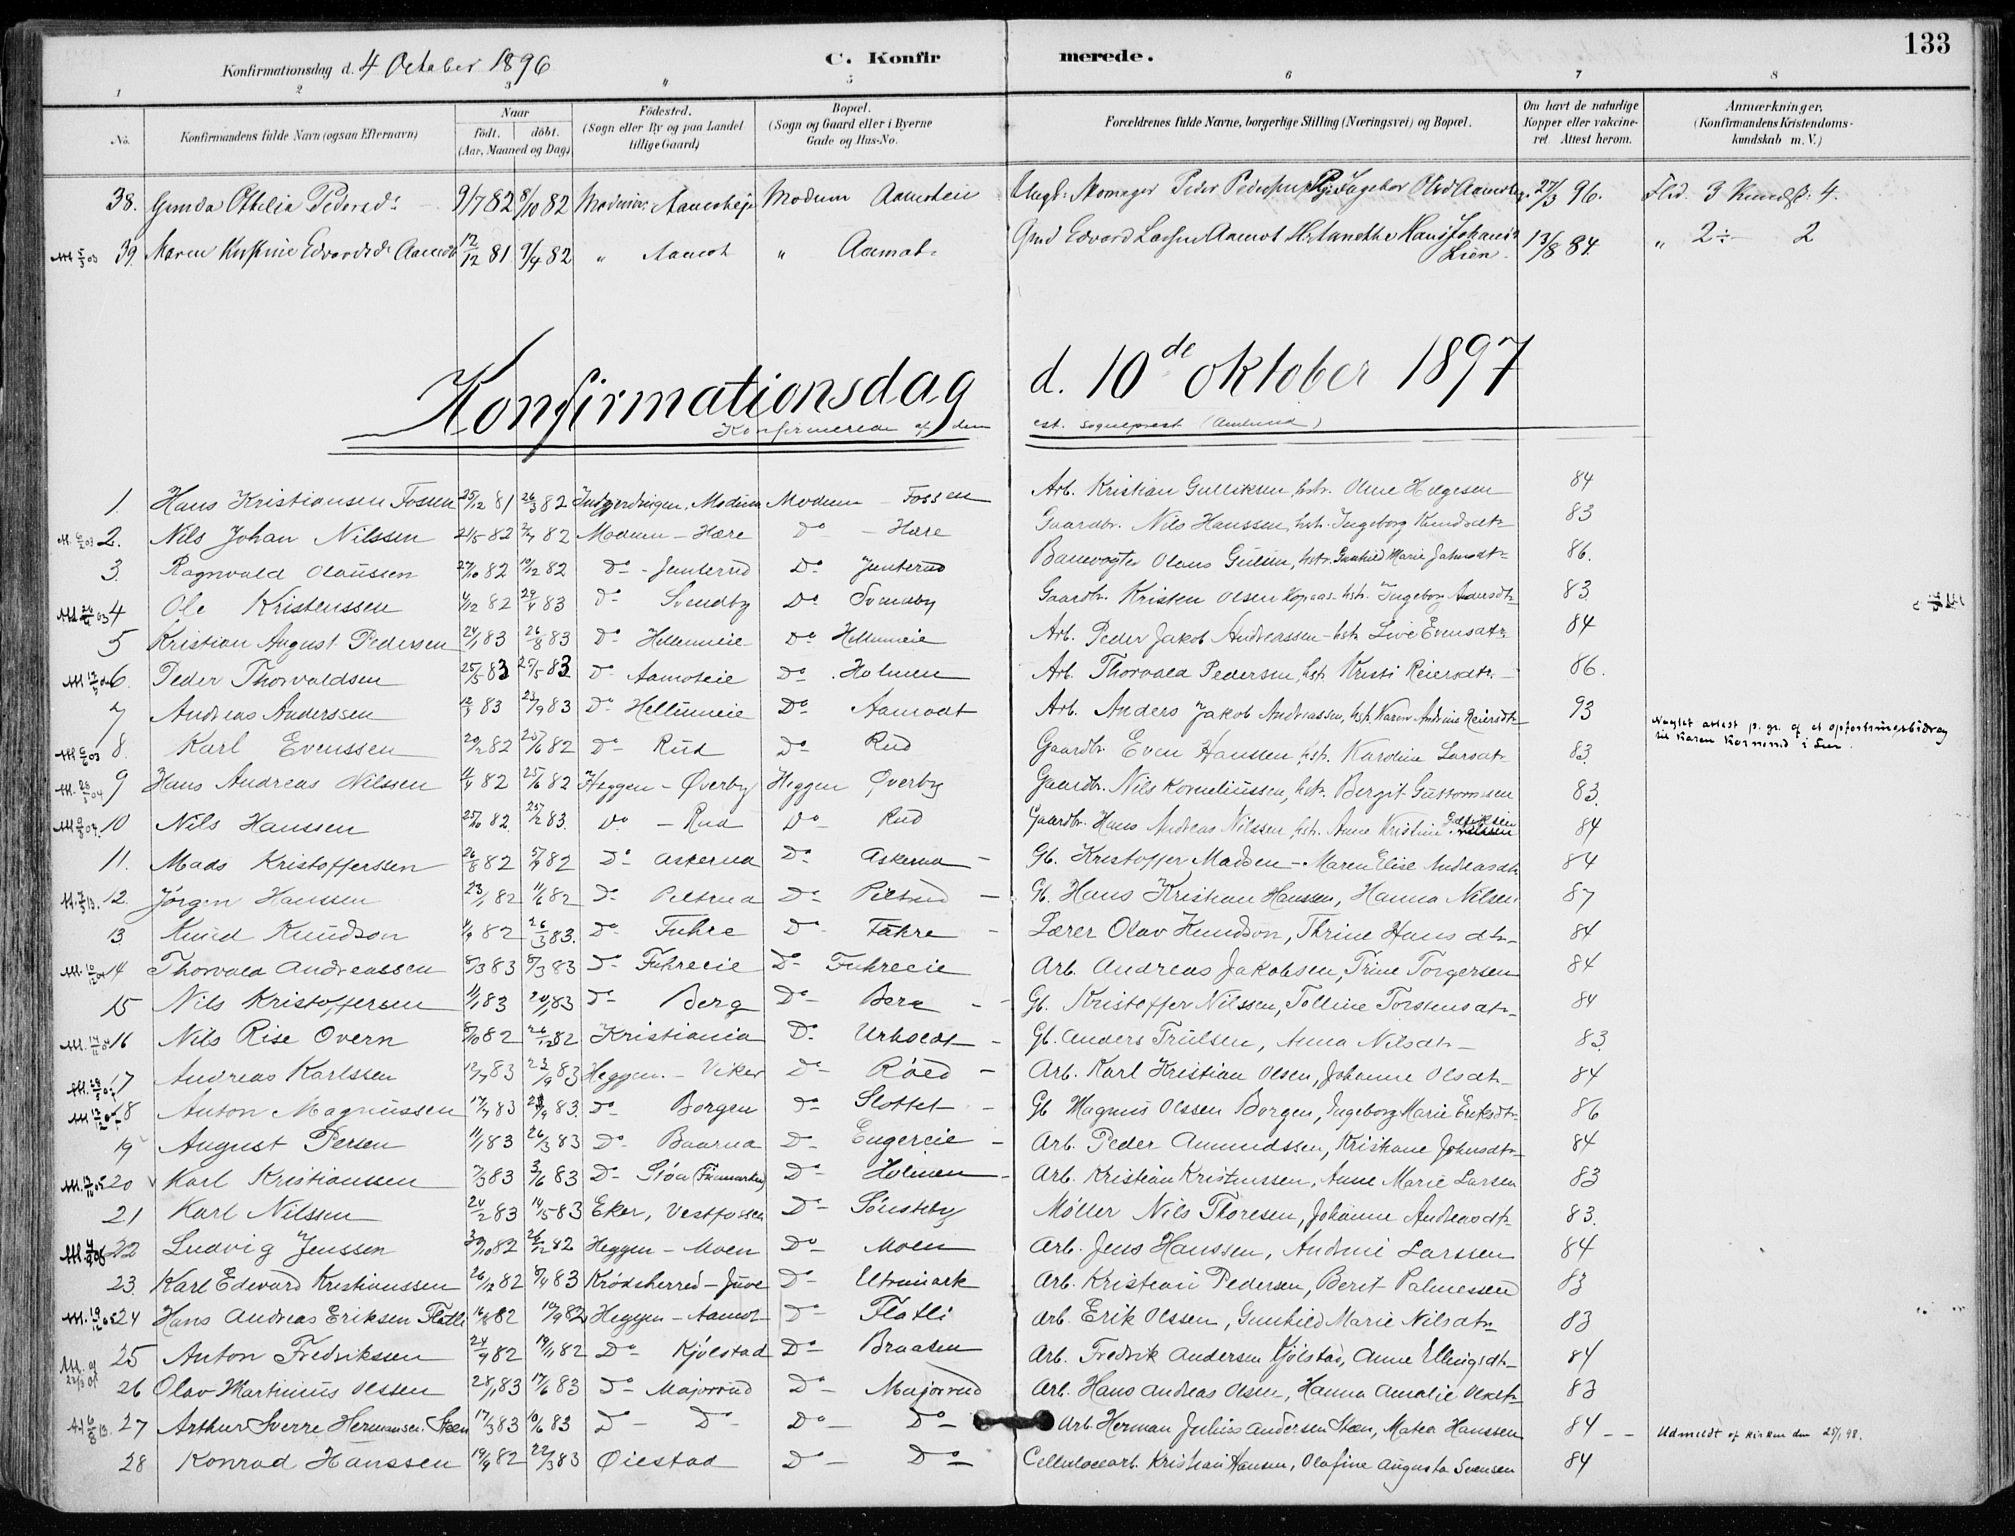 133
Konfirmationsdag d. 4 October 1896
C. Konfirmerede.
1 2 3 4 5 6 7 8
No. Konfirmandens fulde Navn (ogsaa Efternavn) Naar født. døbt. (Aar, Maaned og Dag) Fødested. (Sogn eller By og paa Landet tillige Gaard) Bopæl. (Sogn og Gaard eller i Byerne Gade og Hus-No. Forældrenes fulde Navne, borgerlige Stilling (Næringsvei) og Bopæl. Om havt de naturlige Kopper eller vakcineret. Attest herom. Anmærkninger. (Konfirmandens Kristendomskundskab m. V.)
38. Gunda Othilia Pedersd. 9/7 82 8/10 82 Modum Modum Aamoteie Peder Ingebor Olsd 27/3 96. Flid 3 4.
39. Maren Edvardsd. Aamodt 12/12 81 9/4 82 " Aamot " Aamot Edvard Larsen Aamot Lien. 13/8 84. " 2÷ 2
Konfirmationsdag d. 10de oktober 1897
Konfirmerede af den est. sogneprest
1. Hans Kristiansen Fossen 25/12 81 26/3 82 Modum Modum - Fossen Arb. Kristian Gulliksen, hstr. Anne Helgesen 84
2. Nils Johan Nilssen 21/5 82 2/7 82 Modum - Hære Do - Hære Gaardbr. Nils Hanssen, hstr. Ingeborg Knudsdtr 83
3. Ragnvald Olaussen 27/10 82 10/12 82 Do - Junterud Do Junterud Banevogter Olaus hstr. Gunhild Marie 86.
4 Ole Kristenssen 4/12 82 29/4 83 Do Svendby Do Svendby Gaardbr. Kristen Olsen hstr. Ingeborg 83
5 Kristian August Pedersen 24/1 83 26/8 83 Do Hellumeie Do Hellumeie Arb. Peder Jakob Andreassen - hstr. Live Evensdtr 84
6. Peder Thorvaldsen 25/5 83 27/5 83 Do Aamoteie Do Holmen Arb. Thorvald Pedersen, hstr. Kristi Reiersdtr. 86.
7 Andreas Anderssen 12/3 83 23/9 83 Do Hellumeie Do Aamodt Arb. Anders Jakob Andreassen, hstr. Karen Andrine Reiersdtr 93 attest p. gr. af et til Karen i
8. Karl Evenssen 20/2 82 25/6 82 Do Rud Do Rud Gaardbr. Even Hanssen, hstr. Karoline Larsdtr 83.
9 Hans Andreas Nilssen 11/4 82 25/6 82 Heggen - Øverby Heggen Øverby Gaardbr. Nils Korneliussen, hstr. Bergit Guttormsen 83.
10 Nils Hanssen 25/10 82. 25/2 83. Do - Rud Do Rud Gaardbr. Hans Andreas Nilssen, hstr. Anne Kristine 84
11. Mads Kristofferssen 26/8 82 82 Do Askerud Do Askerud - Gb. Kristoffer Madsen - Maren Elise Andreasdtr 84
12. Jörgen Hanssen 23/1 82 11/6 82 Do Piltrud Do Piltrud - Gb. Hans Kristian Hanssen, Hanna Nilsen 87
13 Knud Knudson 1/9 82 26/3 83. Do Fuhre Do Fuhre - Lærer Olav Knudson, Thrine Hansdtr 84
14 Thorvald Andreassen 8/3 83 83 Do Fuhreeie Do Fuhreeie Arb. Andreas Jakobsen, Trine Torgersen 84
15 Nils Kristoffersen 11/1 83 83 Do Berg Do Berg Gb. Kristoffer Nilssen, Tolline Torstensdtr 84
16 Nils Rise Overn 8/10 82 26/12 82 Kristiania Do Gb. Anders Trulsen, Anna Nilsdtr 83.
17 Andreas Karlssen 12/7 83 23/9 83 Heggen - Viker Do Röed - Arb. Karl Kristian Olsen, Johanne Olsdtr 84
18 Anton Magnussen 17/7 83 83. Do Borgen Do Slottet - Gb Magnus Olssen Borgen, Ingeborg Marie Eriksdtr 86
19 August Persen 11/1 83 26/3 83 Do Buarud Do Engereie - Arb. Peder Amundssen, Kristiane Johnsdtr 84
20 Karl Kristianssen 7/3 83 3/6 83 Do Do Holmen - Arb. Kristian Kristenssen, Anne Marie Larsen 83
21 Karl Nilssen 24/2 83 14/5 83 Eker, Vestfossen Do Sönsteby Møller Nils Thoresen, Johanne Andreasdtr 83.
22 Ludvig Jenssen 30/10 82 26/12 82 Heggen - Moen Do Moen Arb. Jens Hanssen, Andrine Larssen 84
23. Karl Edvard Kristianssen 26/12 82 8/4 83 Krødsherred - Juve Do Utmark Arb. Kristian Pedersen, Berit Palmessen 83
24 Hans Andreas Eriksen Flatli 16/8 82 19/9 82 Heggen - Aamot Do Flatli Arb. Erik Olssen, Gunhild Marie Nilsdtr 83
25 Anton Fredriksen 24/9 82 19/11 82 Do Kjölstad Do Braaten Arb. Fredrik Andersen Kjölstad, Anne Ellingsdtr 84
26 Olav Martinius Olssen 28/1 83 17/6 83 Do Majorrud Do Majorrud Arb. Hans Andreas Olsen, Hanna Amalie Olsdtr 83
27 Arthur Sverre Hermansen Steen 17/3 83 10/6 83 Do Do Do Do Arb. Herman Julius Andersen Steen, Matea Hanssen 84 Udmeldt af kirken den 25/1 98.
28 Konrad Hanssen 19/9 82 22/3 83 Øiestad Do Do Cellulosearb. Kristian Hansen, Olafine Augusta Svensen 84